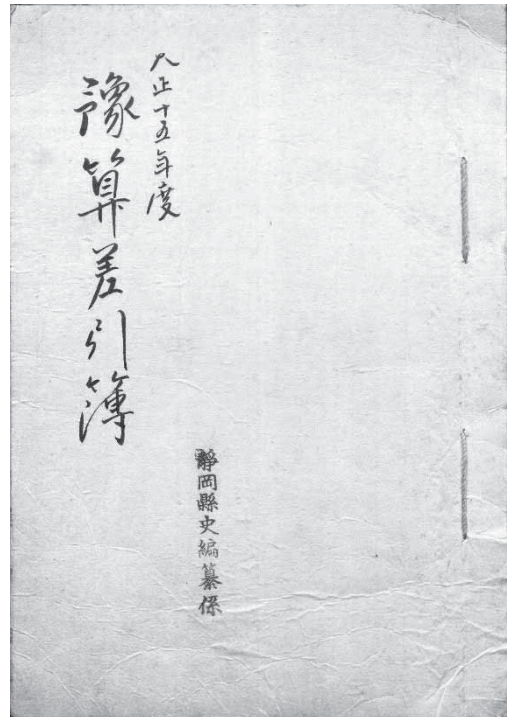 大正十五年度
豫算差引簿
靜岡縣史編纂係